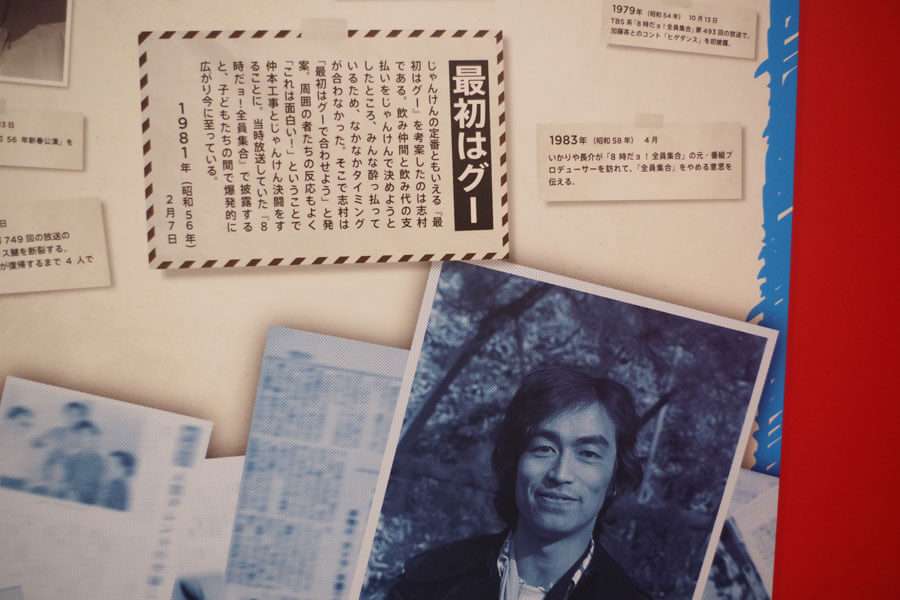 1979年（昭和54年） 10月13日
TBS系「8時だョ！全員集合」第493回の放送で、
加藤茶とのコント「ヒゲダンス」を初披露。
最初はグー
じゃんけんの定番ともいえる「最
初はグー」を考案したのは志村
である。飲み仲間と飲み代の支
払いをじゃんけんで決めようと
したところ、みんな酔っ払って
いるため、なかなかタイミング
が合わなかった。そこで志村は
「最初はグーで合わせよう」と発
案。周囲の者たちの反応もよく
「これは面白い！」ということで
仲本工事とじゃんけん決闘をす
ることに。当時放送していた「8
時だョ！全員集合」で披露する
と、子どもたちの間で爆発的に
広がり今に至っている。
1981年（昭和56年）
2月7日
1983年（昭和58年） 4月
いかりや長介が「8時だョ！全員集合」の元・番組プ
ロデューサーを訪れて、「全員集合」をやめる意思を
伝える。
3日
56年新春公演」を
日
749回の放送の
ス腱を断裂する。
が復帰するまで4人で